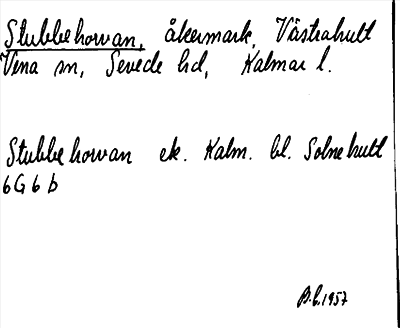 Stubbehorvan, åkermark, Västrahult
Vena sn, Sevede hd, Kalmar l.
Stubbehorvan ek. Kalm. bl. Solnehult
6G6b
B.L. 1957